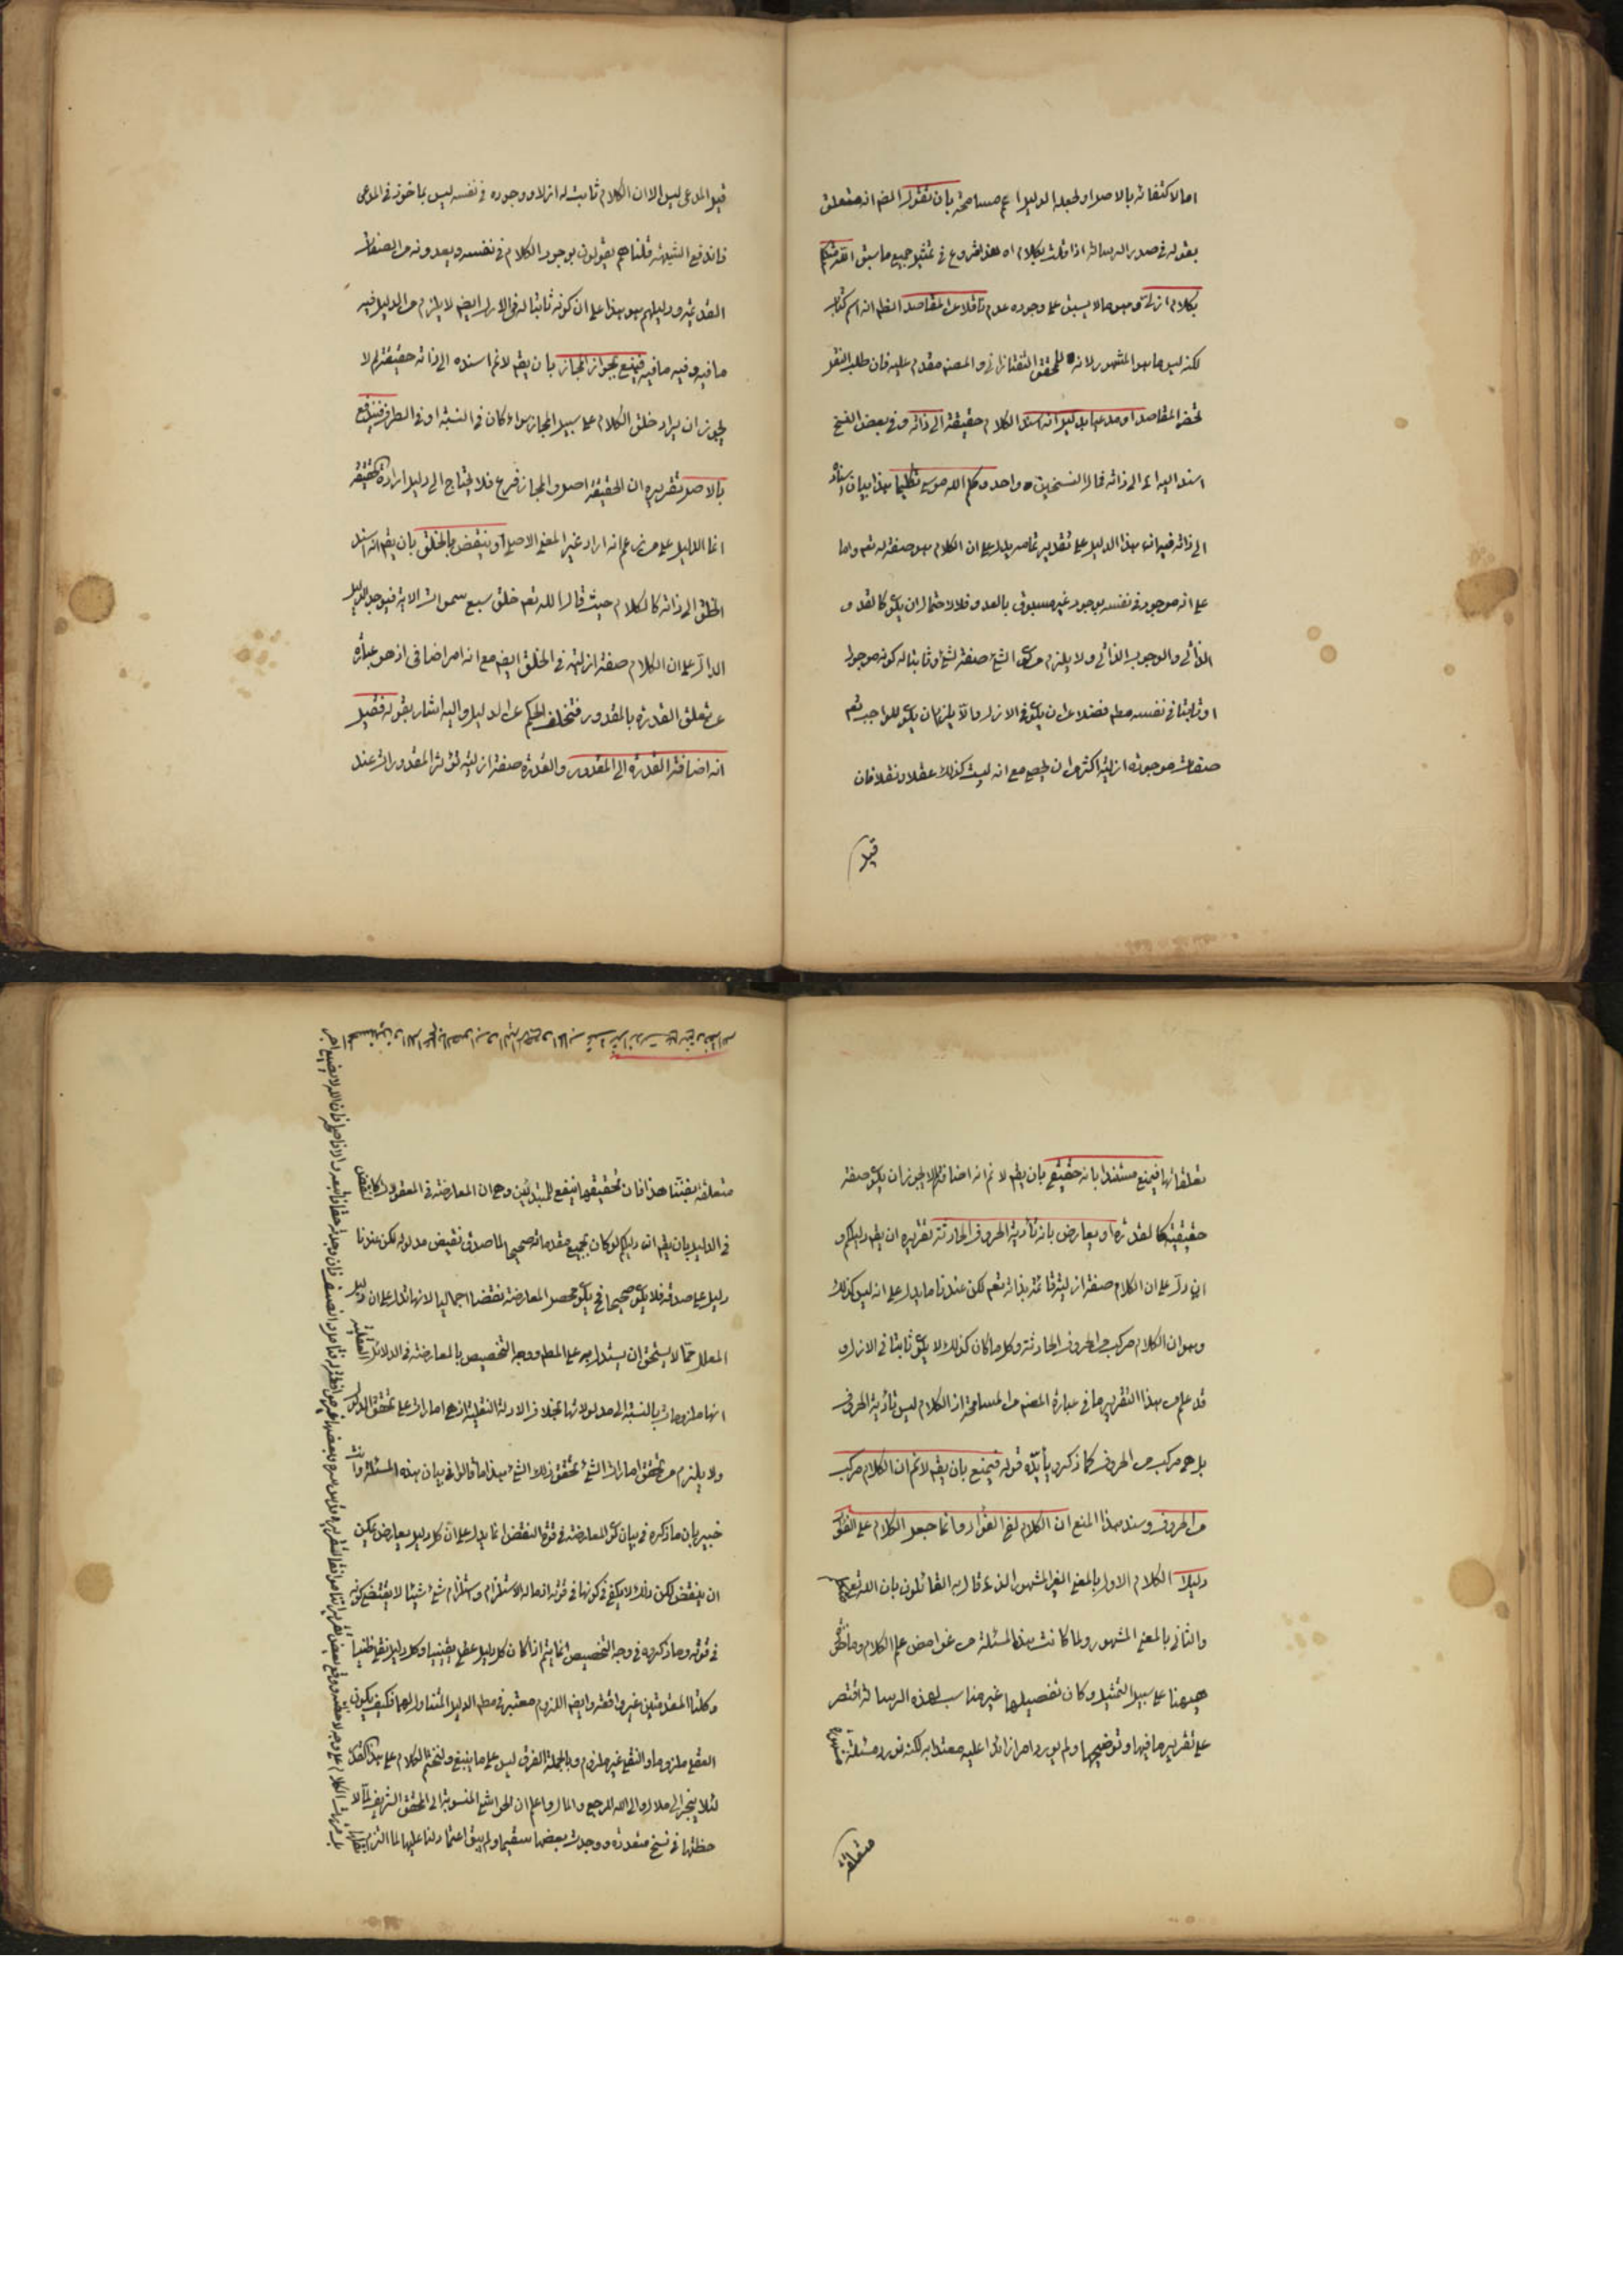 اما لاكتفائه بالاصل او لجعله الدليل اعم مسامحة بان تقول المص انه متعلق
بقوله في صدر الرسالة اذا قلت بكلام اه هذا شروع في تمثيل جميع ما سبق الله متكلم
بكلام ازلي وهو ما لا يسبق على وجوده عدم ناقلا عن المقاصد الظ انه اسم كتاب
لكنه ليس ما هو المشهور لانه للمحقق التفتازاني والمصنف مقدم عليه فان طلب النقل
تحضر المقاصد او مدعيا بدليل انه اسند الكلام حقيقة الى ذاته وفي بعض النسخ
اسند اليه اى الى ذاته فمآل النسختين واحد وكلم الله موسى تكليما هذا بيان اسناده
الى ذاته فيه ان هذا الدليل على تقدير تمامه يدل على ان الكلام هو صفة له تعم واما
على انه موجود في نفسه بوجود غير مسبوق بالعدم فلا لاحتمال ان يكون كالقدم
الذاتي والوجوب الذاتي ولا يلزم من كون الشئ صفة لشئ وثابتا له كونه موجودا
او ثابتا في نفسه مطم فضلا عن ان يكون في الازل والا يلزم ان يكون للواجب تعم
صفات موجودة ازلية اكثر من ان يحصى مع انه ليست كذلك عقلا ونقلا فان
قيل
قيل المدعى ليس الا ان الكلام ثابت له ازلا ووجوده في نفسه ليس بماخوذ في المدعى
فاندفع الشبهة قلنا هم يقولون بوجود الكلام في نفسه ويعدونه من الصفات
القديمة ودليلهم هو هذا على ان كونه ثابتا له في الازل ايض لا يلزم من الدليل فيه
ما فيه وفيه ما فيه فيمنع بجواز المجاز بان يقم لا نم اسنده الى ذاته حقيقة لم لا
يجوز ان يراد خلق الكلام على سبيل المجاز سواء كان في النسبة او في الطرف فيندفع
بالاصل تقريره ان الحقيقة اصل والمجاز فرع فلا يحتاج الى دليل ارادة الحقيقة
انما الدليل على من زعم انه اراد غير المعنى الاصلي او ينقض بالخلق بان يقم انه اسند
الخلق الى ذاته كالكلام حيث قال الله تعم خلق سبع سموات الاية فيوجد الدليل
الدال على ان الكلام صفة ازلية في الخلق ايض مع انه امر اضافي اذ هو عبارة
عن تعلق القدرة بالمقدور فتخلف الحكم عن الدليل واليه اشار بقوله فقيل
انه اضافة القدرة الى المقدور والقدرة صفة ازلية تؤثر المقدورات عند
تعلقاتها فيمنع مستندا بانه حقيقي بان يقم لا نم انه اضافة لم لا يجوز ان يكون صفة
حقيقية كالقدرة او يعارض بانه تأدية الحروف الحادثة تقريره ان يقم دليلكم و
ان دل على ان الكلام صفة ازلية قائمة بذاته تعم لكن عندنا ما يدل على انه ليس كذلك
وهو ان الكلام مركب من الحروف الحادثة وكل ما كان كذلك لا يكون ثابتا في الازل و
قد علم من هذا التقرير ما في عبارة المصنف من المسامحة اذ الكلام ليس تأدية الحروف
بل هو مركب من الحروف كما ذكر ويأيده قوله فيمنع بان يقم لا نم ان الكلام مركب
من الحروف وسند هذا المنع ان الكلام لفي الفؤاد وانما جعل الكلام على الفؤاد
دليلا الكلام الاول بالمعنى الغير المشهور الذى قال به القائلون بان الله تعم متكلم
والثاني بالمعنى المشهور ولما كانت هذه المسئلة من غوامض علم الكلام وما ذكر
هيهنا على سبيل التمثيل وكان تفصيلها غير مناسب لهذه الرسالة اقتصر
على تقرير ما فيها وتوضيحها ولم يورد امرا زائدا عليه معتدا به لكنه نورد مسئلة
متعلقة
متعلقة بفننا هذا فان تحقيقها ينفع للمبتدئين وهي ان المعارضة في المعقولات كالنقض
في الدليل بان يقم ان دليلكم لو كان بجميع مقدماته صحيحا لما صدق نقيض مدلوله لكن عندنا
دليل على صدقه فلا يكون صحيحا فح يكون محصل المعارضة نقضا اجماليا لانها تدل على ان دليل
المعلل مما لا يستحق ان يستدل به على المطم ووجه التخصيص بالمعارضة في الدلائل العقلية
انها ملزومات بالنسبة الى مدلولاتها بخلاف الادلة النقلية اذ هي امارات على تحقق المدلول
ولا يلزم من تحقق امارات الشئ تحقق ذلك الشئ هذا ما قالوا في بيان هذه المسئلة وانت
خبير بان ما ذكره في بيان كون المعارضة في قوة النقض انما يدل على ان كل دليل يعارض يمكن
ان ينقض لكن ذلك لا يكفي في كونها في قوته اذ ماله الاستلزام واستلزام شئ شيئا لا يقتضي كونه
في قوته وما ذكروه في وجه التخصيص انما يتم اذا كان كل دليل عقلي يقينيا وكل دليل نقلي ظنيا
وكلتا المقدمتين غير واقعة وايض اللزوم معتبر في مطم الدليل المتناول لهما فكيف يكون
العقلي ملزوما والنقلي غير ملزوم وبالجملة الفرق ليس على ما ينبغي ولنختم الكلام على هذا القدر
لئلا ينجر الى ملال والى الله المرجع والمآل واعلم ان الحواشي المنسوبة الى المحقق الشريف لما لا
حظتها في نسخ متعددة ووجدت بعضها سقيما ولم يبق اعتمادنا عليها لما التزم